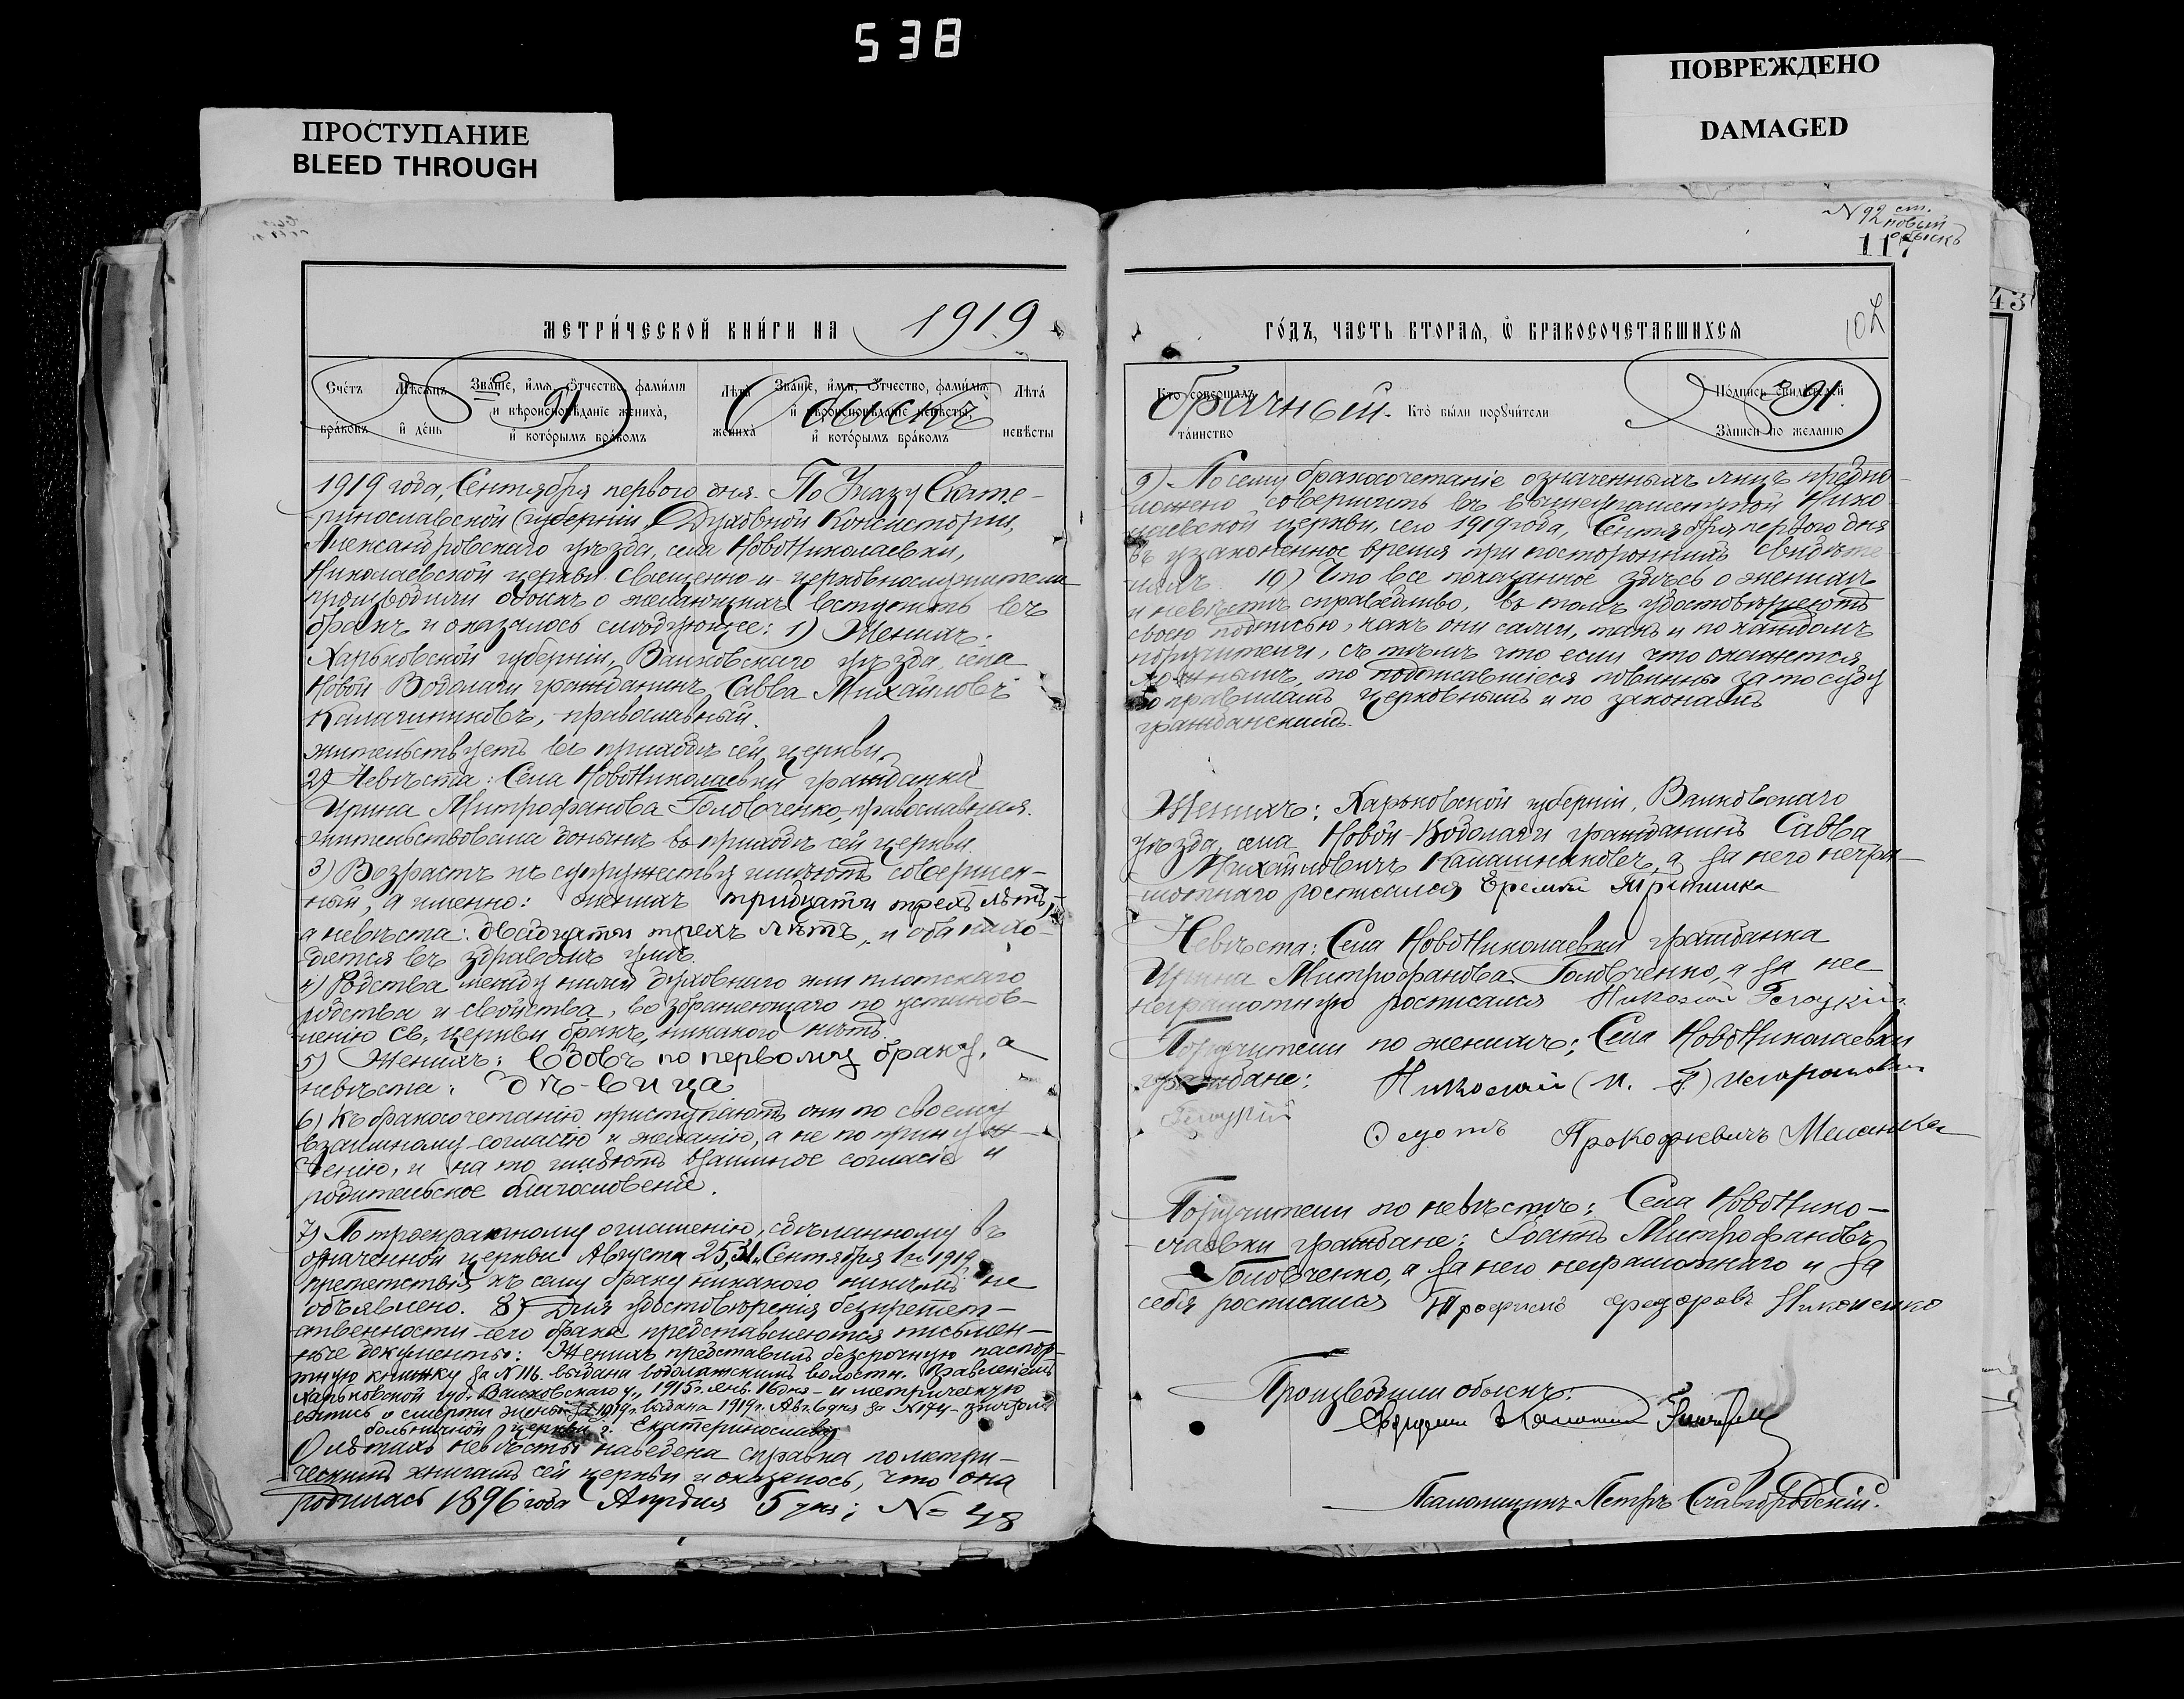 538
ПРОСТУПАНИЕ
BLEED THROUGH
ПОВРЕЖДЕНО
DAMAGED
N 92 ст.
новый
обыскъ
117
43
МЕТРИ́ЧЕСКОЙ КНИ́ГИ НА 1919
ГО́ДЪ, ЧАСТЬ ВТОРАѦ, Ѽ БРАКОСОЧЕТАВШИХСѦ
102
Сче́тъ бра́ковъ
Мѣсѧцъ и҆ де́нь
Зва́нїе, и҆́мѧ, ѻ҆́тчество, фами́лїѧ и҆ вѣроисповѣ́данїе жениха̀, и҆ кото́рымъ бра́комъ
Лѣта̀ жениха̀
Зва́нїе, и҆́мѧ, ѻ҆́тчество, фами́лїѧ и҆ вѣроисповѣ́данїе невѣ́сты, и҆ кото́рымъ бра́комъ
Лѣта́ невѣ́сты
Кто̀ соверша́лъ та́инство
Кто̀ бы́ли порꙋчи́тели
По́дпись свидѣ́телей За́писи по жела́нїю
91
Обыскъ
Брачный.
91.
1919 года, Сентября первого дня. По Указу Екате-
ринославской губерніи, Духовной Консисторіи,
Александровскаго уѣзда, села НовоНиколаевки,
Николаевской церкви священно-и-церковнослужители
производили обыскъ о желающихъ вступить въ
бракъ и оказалось слѣдующее: 1) Женихъ:
Харьковской губерніи, Валковскаго уѣзда, села
Новой Водолаги гражданинъ, Савва Михайловъ
Калашниковъ, православный.
жительствуетъ въ приходѣ сей церкви.
2) Невѣста: Села НовоНиколаевки гражданка
Ирина Митрофанова Головченко, православная.
жительствовала донынѣ въ приходѣ сей церкви.
3) Возрастъ къ супружеству имѣютъ совершен-
ный, а именно: женихъ тридцати трехъ лѣтъ,
а невѣста: двадцати трехъ лѣтъ, и оба нахо-
дятся въ здравомъ умѣ.
4) Родства между ними духовнаго или плотскаго
родства и свойства, возбраняющаго по установ-
ленію св. церкви бракъ, никакого нѣтъ.
5) Женихъ: вдовъ по первому браку, а
невѣста: дѣ-вица
6) Къ бракосочетанію приступаютъ они по своему
взаимному согласію и желанію, а не по принуж-
денію, и на то имѣютъ взаимное согласіе и
родительское благословеніе.
7) По троекратному оглашенію, сдѣланному въ
означенной церкви Августа 25, 31, Сентября 1го 1919
препятствія къ сему браку никакого никѣмъ не
объявлено. 8) Для удостовѣренія безпрепят-
ственности сего брака представляются письмен-
ные документы: Женихъ представилъ безсрочную паспор-
тную книжку за N 116. выдана водолажскимъ волостн. Правленіемъ
Харьковской губ. Валковскаго у., 1915 г. янв. 16 дня - и метрическую
выпись о смерти жены 1919 г. выдана 1919 г. Авг. 6 дня за N 174
больничной церкви г. Екатеринослава
О лѣтахъ невѣсты наведена справка по метри-
ческимъ книгамъ сей церкви и оказалось, что она
родилась 1896 года Апрѣля 5 дня; N= 48
9) Посему бракосочетаніе означенныхъ лицъ предпо-
ложено совершить въ вышеупомянутой Нико-
лаевской церкви, сего 1919 года, Сентября первого дня
въ узаконенное время при постороннихъ свидѣте-
ляхъ. 10) Что все показанное здѣсь о женихѣ
и невѣстѣ справедливо, въ томъ удостовѣряютъ
своею подписью, какъ они сами, такъ и по каждомъ
поручители, съ тѣмъ что если что окажется
ложнымъ, то подписавшіеся повинны за то суду
по правиламъ церковнымъ и по законамъ
гражданскимъ.
Женихъ: Харьковской губерніи, Валковскаго
уѣзда, села Новой-Водолаги гражданинъ Савва
Михайловичъ Калашниковъ, а за него негра-
мотнаго росписался Еремѣй
Невѣста: Села НовоНиколаевки гражданка
Ирина Митрофанова Головченко, а за нее
неграмотную росписался Николай
Поручители по женихѣ: Села НовоНиколаевки
граждане: Николай
Федотъ Прокофьевичъ
Поручители по невѣстѣ: Села НовоНико-
лаевки граждане: Іоаннъ Митрофановъ
Головченко, а за него неграмотнаго и за
себя росписался Трофимъ Федоровъ
Производили обыскъ:
Псаломщикъ Петръ Славгородскій.